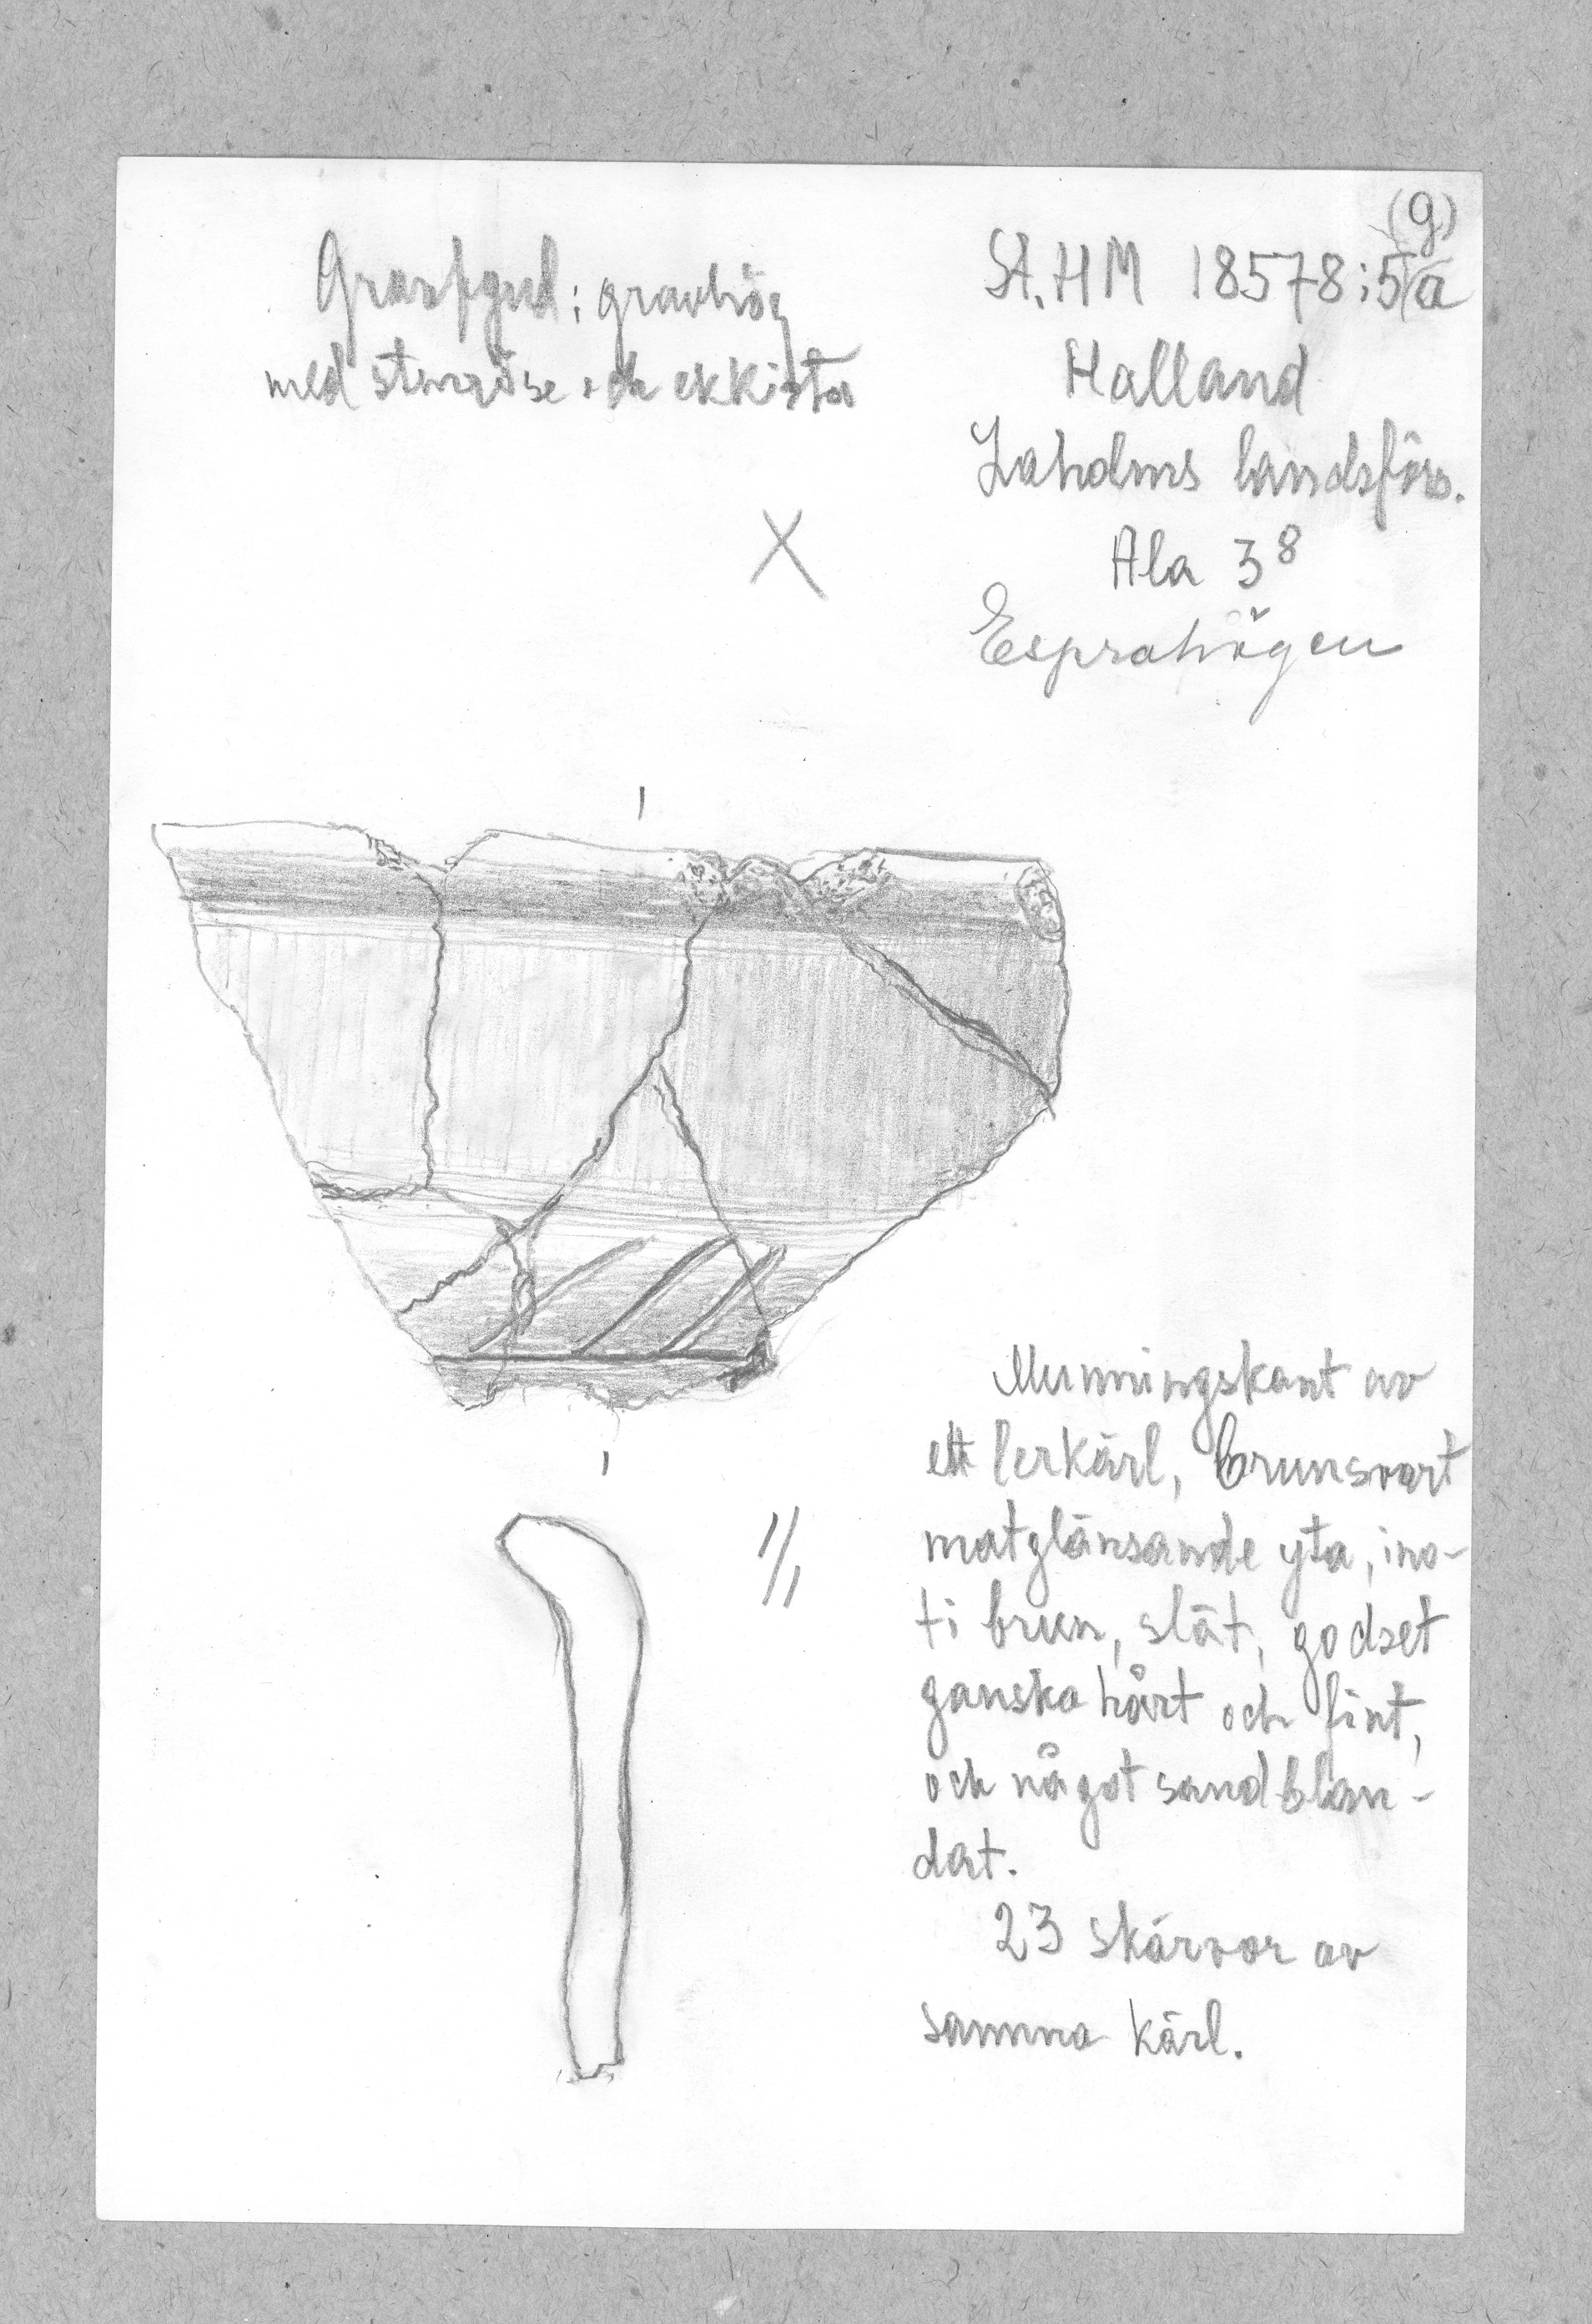 (g)
St. HM 18578:5/a
Gravfynd i gravhög
med stenröse och ekkista
Halland
Laholms landsförs.
Ala 3⁸
X
Esprahögen
1/1
Mynningskant av
ett lerkärl, brunsvart
matglänsande yta, inu-
ti brun, slät, godset
ganska hårt och fint,
och något sandblan-
dat.
23 skärvor av
samma kärl.